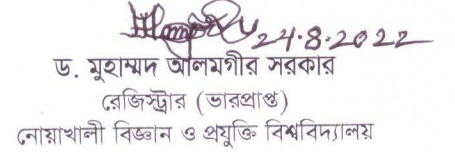 24.8.2022
ড. মুহাম্মদ আলমগীর সরকার
রেজিস্ট্রার (ভারপ্রাপ্ত)
নোয়াখালী বিজ্ঞান ও প্রযুক্তি বিশ্ববিদ্যালয়